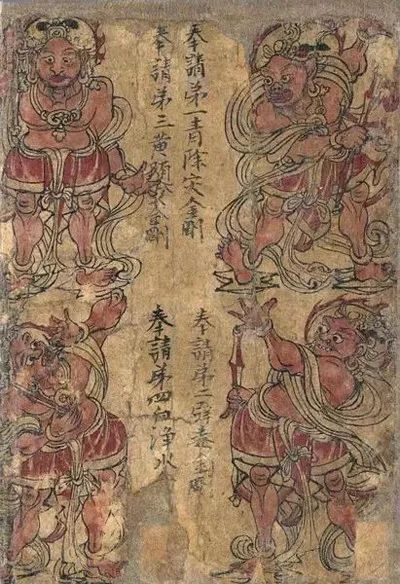 奉請第一青除灾金剛
奉請第三黄随求金剛
奉請第二辟毒金剛
奉請第四白淨水